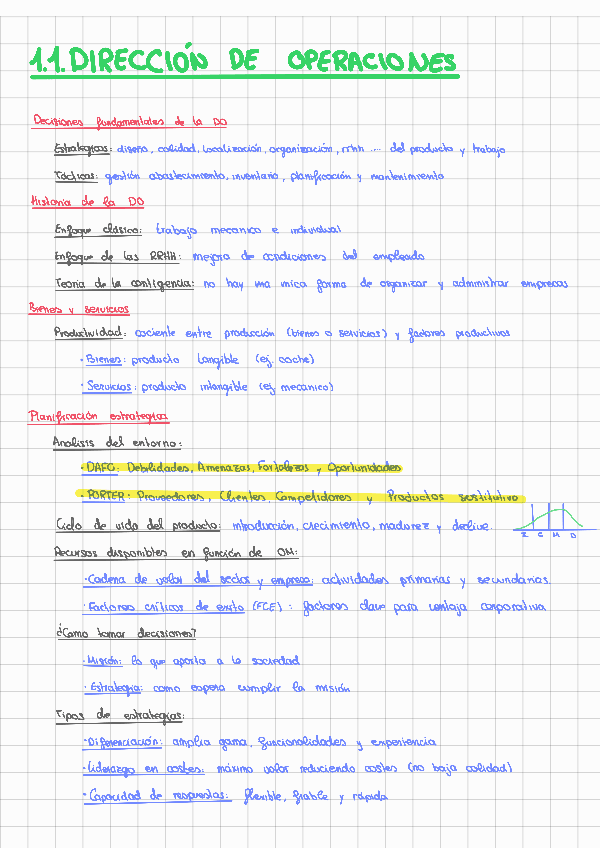 1.1. DIRECCIÓN DE OPERACIONES
Decisiones fundamentales de la DO
Estrategicas: diseño, calidad, localización, organización, rrhh .... del producto y trabajo
Tácticas: gestión abastecimiento, inventario, planificación y mantenimiento
Historia de la DO
Enfoque clásico: trabajo mecanico e individual
Enfoque de las RRHH: mejora de condiciones del empleado
Teoria de la contigencia: no hay una única forma de organizar y administrar empresas
Bienes y servicios
Productividad: cociente entre producción (bienes o servicios) y factores productivos
· Bienes: producto tangible (ej. coche)
· Servicios: producto intangible (ej mecanico)
Planificación estrategica
Analisis del entorno:
· DAFO: Debilidades, Amenazas, Fortalezas y Oportunidades
· PORTER: Proveedores, Clientes, Competidores y Productos sustitutivo
Ciclo de vida del producto: introducción, crecimiento, madurez y declive.
I C M D
Recursos disponibles en función de OM:
· Cadena de valor del sector y empresa: actividades primarias y secundarias
· Factores críticos de exito (FCE): factores clave para ventaja corporativa
¿Como tomar decisiones?
· Misión: lo que aporta a la sociedad
· Estrategia: como espera cumplir la misión
Tipos de estrategias:
· Diferenciación: amplia gama, funcionalidades y experiencia
· Liderazgo en costes: máximo valor reduciendo costes (no baja calidad)
· Capacidad de respuestas: flexible, fiable y rápida